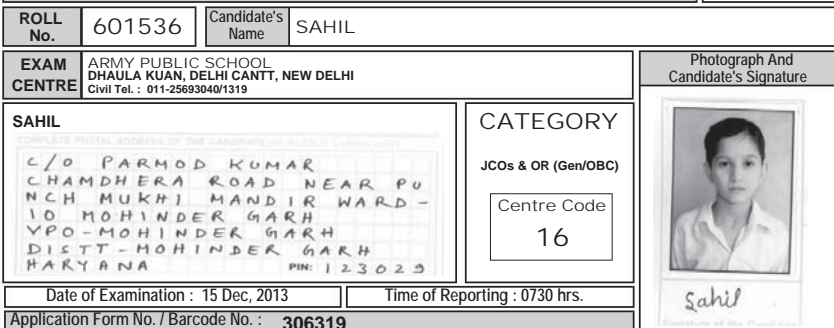 ROLL No. 601536 Candidate's Name SAHIL
EXAM CENTRE ARMY PUBLIC SCHOOL
DHAULA KUAN, DELHI CANTT, NEW DELHI
Civil Tel. : 011-25693040/1319
Photograph And
Candidate's Signature
SAHIL
COMPLETE POSTAL ADDRESS OF THE CANDIDATE
C/O PARMOD KUMAR
CHAMDHERA ROAD NEAR PU
NCH MUKHI MANDIR WARD-
10 MOHINDER GARH
VPO-MOHINDER GARH
DISTT-MOHINDER GARH
HARYANA PIN: 123029
CATEGORY
JCOs & OR (Gen/OBC)
Centre Code
16
Sahil
Signature of the Candidate
Date of Examination : 15 Dec, 2013 Time of Reporting : 0730 hrs.
Application Form No. / Barcode No. : 306319